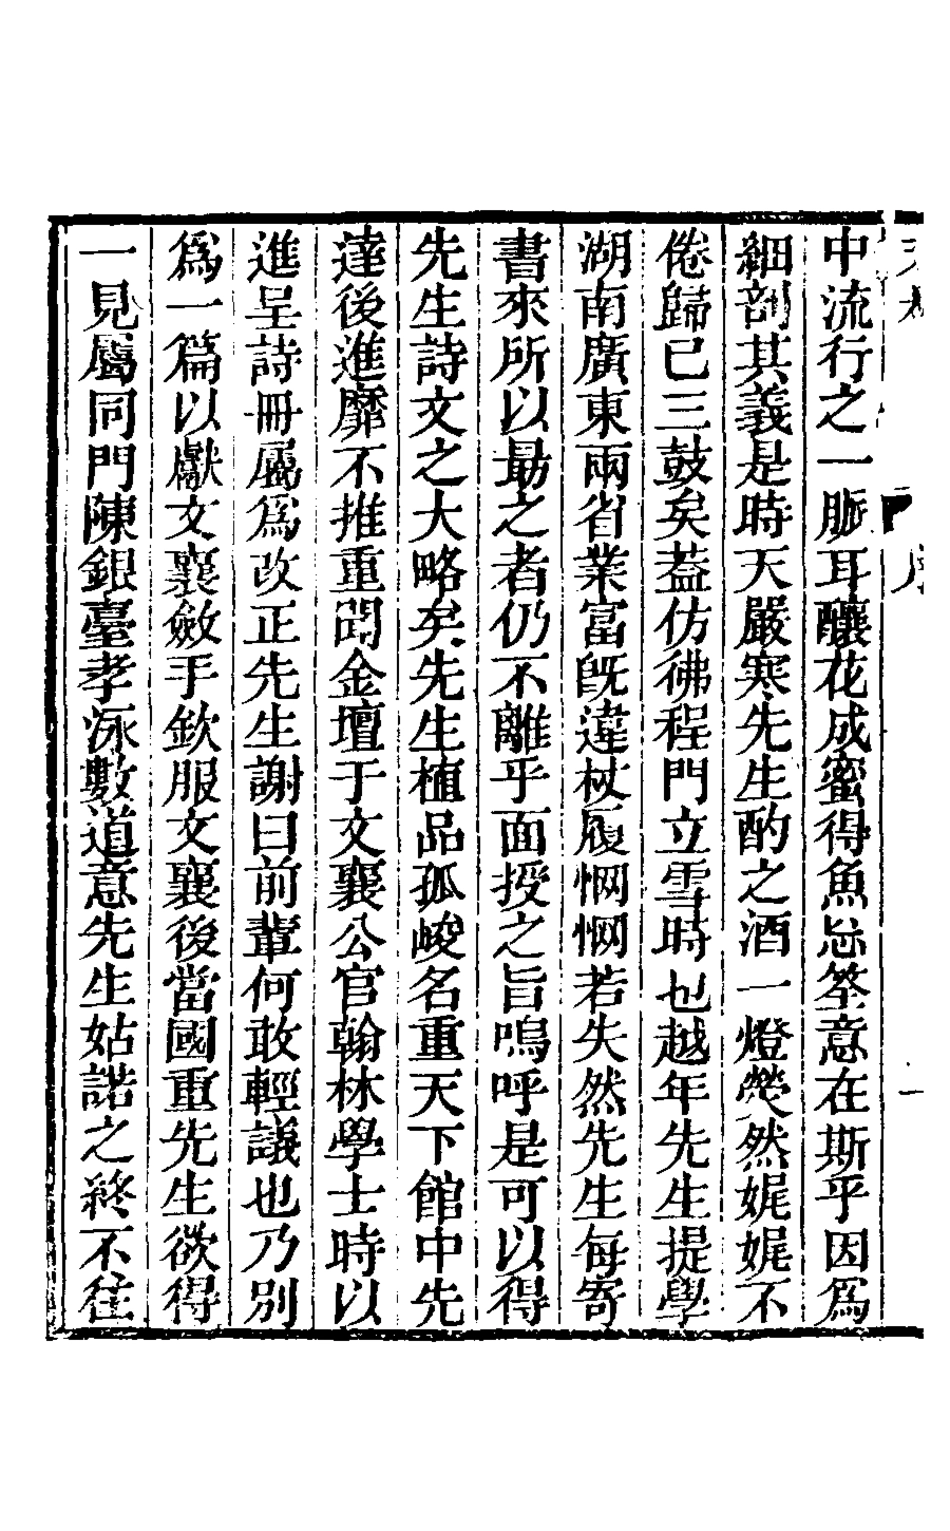 中流行之一脈耳釀花成蜜得魚忘筌意在斯乎因爲
細剖其義是時天嚴寒先生酌之酒一燈熒然娓娓不
倦歸已三鼓矣葢仿彿程門立雪時也越年先生提學
湖南廣東兩省業富旣違杖履惘惘若失然先生每寄
書來所以勗之者仍不離乎面授之旨嗚呼是可以得
先生詩文之大略矣先生植品孤峻名重天下館中先
達後進靡不推重聞金壇于文襄公官翰林學士時以
進呈詩冊屬爲改正先生謝曰前輩何敢輕議也乃別
爲一篇以獻文襄斂手欽服文襄後當國重先生欲得
一見屬同門陳銀臺孝泳數道意先生姑諾之終不往